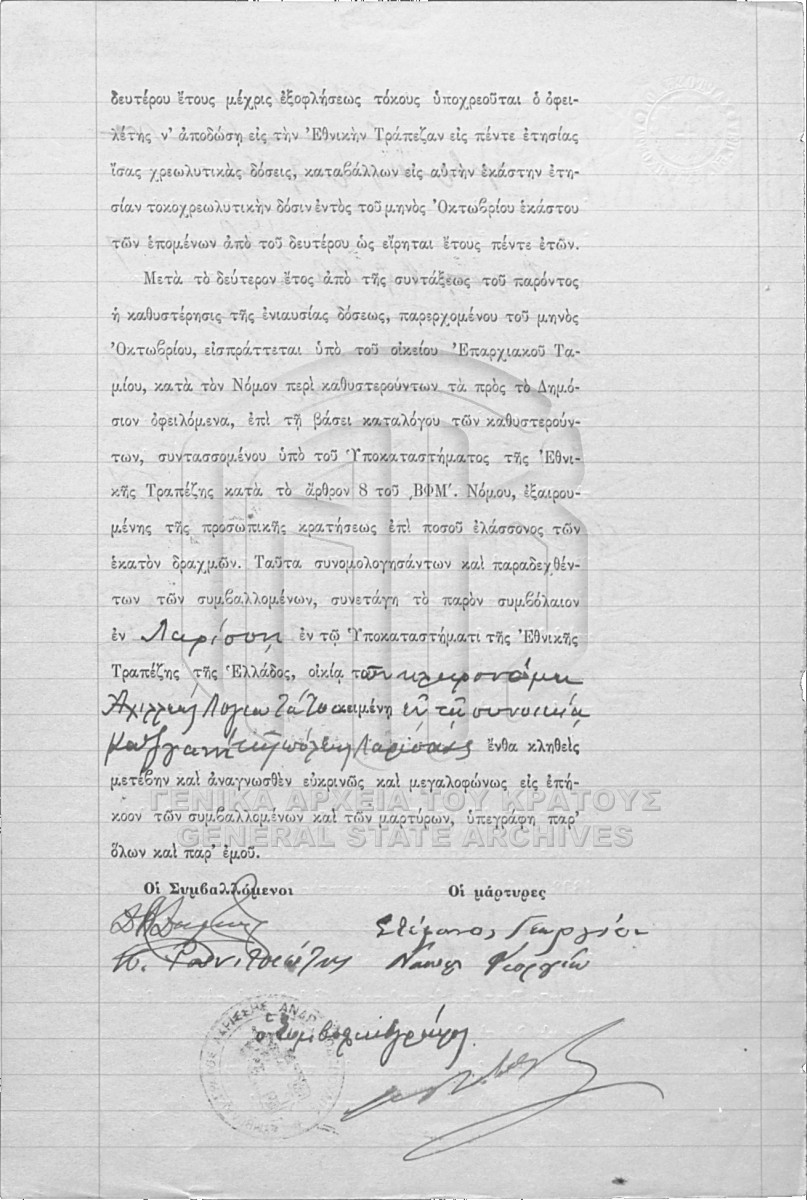 δευτέρου ἔτους μέχρις ἐξοφλήσεως τόκους ὑποχρεοῦται ὁ ὀφει-
λέτης ν' ἀποδώσῃ εἰς τὴν Ἐθνικὴν Τράπεζαν εἰς πέντε ἐτησίας
ἴσας χρεωλυτικὰς δόσεις, καταβάλλων εἰς αὐτὴν ἑκάστην ἐτη-
σίαν τοκοχρεωλυτικὴν δόσιν ἐντὸς τοῦ μηνὸς Ὀκτωβρίου ἑκάστου
τῶν ἑπομένων ἀπὸ τοῦ δευτέρου ὡς εἴρηται ἔτους πέντε ἐτῶν.
Μετὰ τὸ δεύτερον ἔτος ἀπὸ τῆς συντάξεως τοῦ παρόντος
ἡ καθυστέρησις τῆς ἐνιαυσίας δόσεως, παρερχομένου τοῦ μηνὸς
Ὀκτωβρίου, εἰσπράττεται ὑπὸ τοῦ οἰκείου Ἐπαρχιακοῦ Τα-
μίου, κατὰ τὸν Νόμον περὶ καθυστερούντων τὰ πρὸς τὸ Δημό-
σιον ὀφειλόμενα, ἐπὶ τῇ βάσει καταλόγου τῶν καθυστερούν-
των, συντασσομένου ὑπὸ τοῦ Ὑποκαταστήματος τῆς Ἐθνι-
κῆς Τραπέζης κατὰ τὸ ἄρθρον 8 τοῦ ͵ΒΦΜ΄. Νόμου, ἐξαιρου-
μένης τῆς προσωπικῆς κρατήσεως ἐπὶ ποσοῦ ἐλάσσονος τῶν
ἑκατὸν δραχμῶν. Ταῦτα συνομολογησάντων καὶ παραδεχθέν-
των τῶν συμβαλλομένων, συνετάγη τὸ παρὸν συμβόλαιον
ἐν Λαρίσῃ ἐν τῷ Ὑποκαταστήματι τῆς Ἐθνικῆς
Τραπέζης τῆς Ἑλλάδος, οἰκίᾳ τῶν κληρονόμων
Ἀχιλλέως Λογιωτάτου κειμένῃ ἐν τῇ συνοικίᾳ
τῆς πόλεως Λαρίσσης ἔνθα κληθεὶς
μετέβην καὶ ἀναγνωσθὲν εὐκρινῶς καὶ μεγαλοφώνως εἰς ἐπή-
κοον τῶν συμβαλλομένων καὶ τῶν μαρτύρων, ὑπεγράφη παρ'
ὅλων καὶ παρ' ἐμοῦ.
ΓΕΝΙΚΑ ΑΡΧΕΙΑ ΤΟΥ ΚΡΑΤΟΥΣ
GENERAL STATE ARCHIVES
Οἱ Συμβαλλόμενοι Οἱ μάρτυρες
Στέφανος Γεωργίου
Γεωργίου
ὁ συμβολαιογράφος